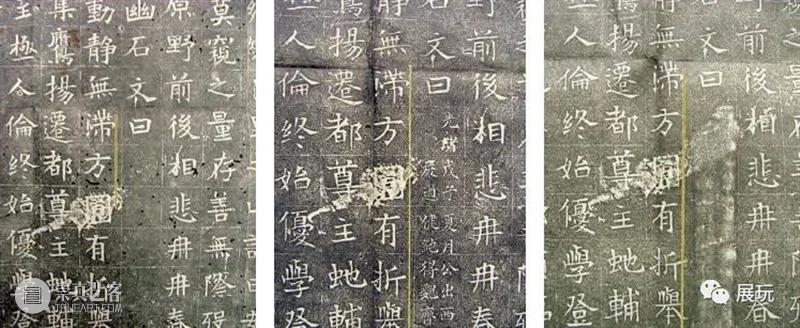 莫窺之量存善無際歿
原野前後相悲冉冉春
幽石文曰
動靜無滯方圓有折舉
集鷹揚遷都尊主虵輔
至極人倫終始優學登
野前後相悲冉冉春
光緒戊子夏月公出西
石文曰
靜無滯方圓有折舉
鷹揚遷都尊主虵輔
極人倫終始優學登
之量存
野前後相悲冉冉春
文曰
靜無滯方圓有折舉
鷹揚遷都尊主虵輔
極人倫終始優學登
崇真艺客
展玩